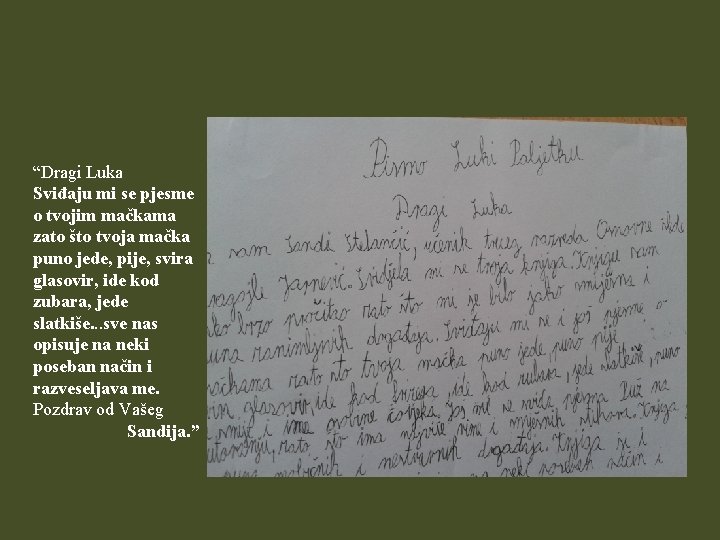 “Dragi Luka
Sviđaju mi se pjesme
o tvojim mačkama
zato što tvoja mačka
puno jede, pije, svira
glasovir, ide kod
zubara, jede
slatkiše...sve nas
opisuje na neki
poseban način i
razveseljava me.
Pozdrav od Vašeg
Sandija.”
Pismo Luki Paljetku
Dragi Luka
sam Sandi Stefančić, učenik trećeg razreda Osnovne škole
Jarnević. Svidjela mi se tvoja knjiga. Knjigu sam
brzo pročitao zato što mi se bilo jako smiješna i
zanimljivih događaja. Sviđaju mi se i još pjesme o
mačkama zato što tvoja mačka puno jede, puno pije
glasovir, ide kod frizera, ide kod zubara, jede slatkiše, puno
i ime osobine čovjeka. Još mi se sviđa pjesma Put na
zato što ima najviše rime i smiješnih stihova. Knjiga
i nestvarnih događaja. Knjiga si i
neki poseban način i